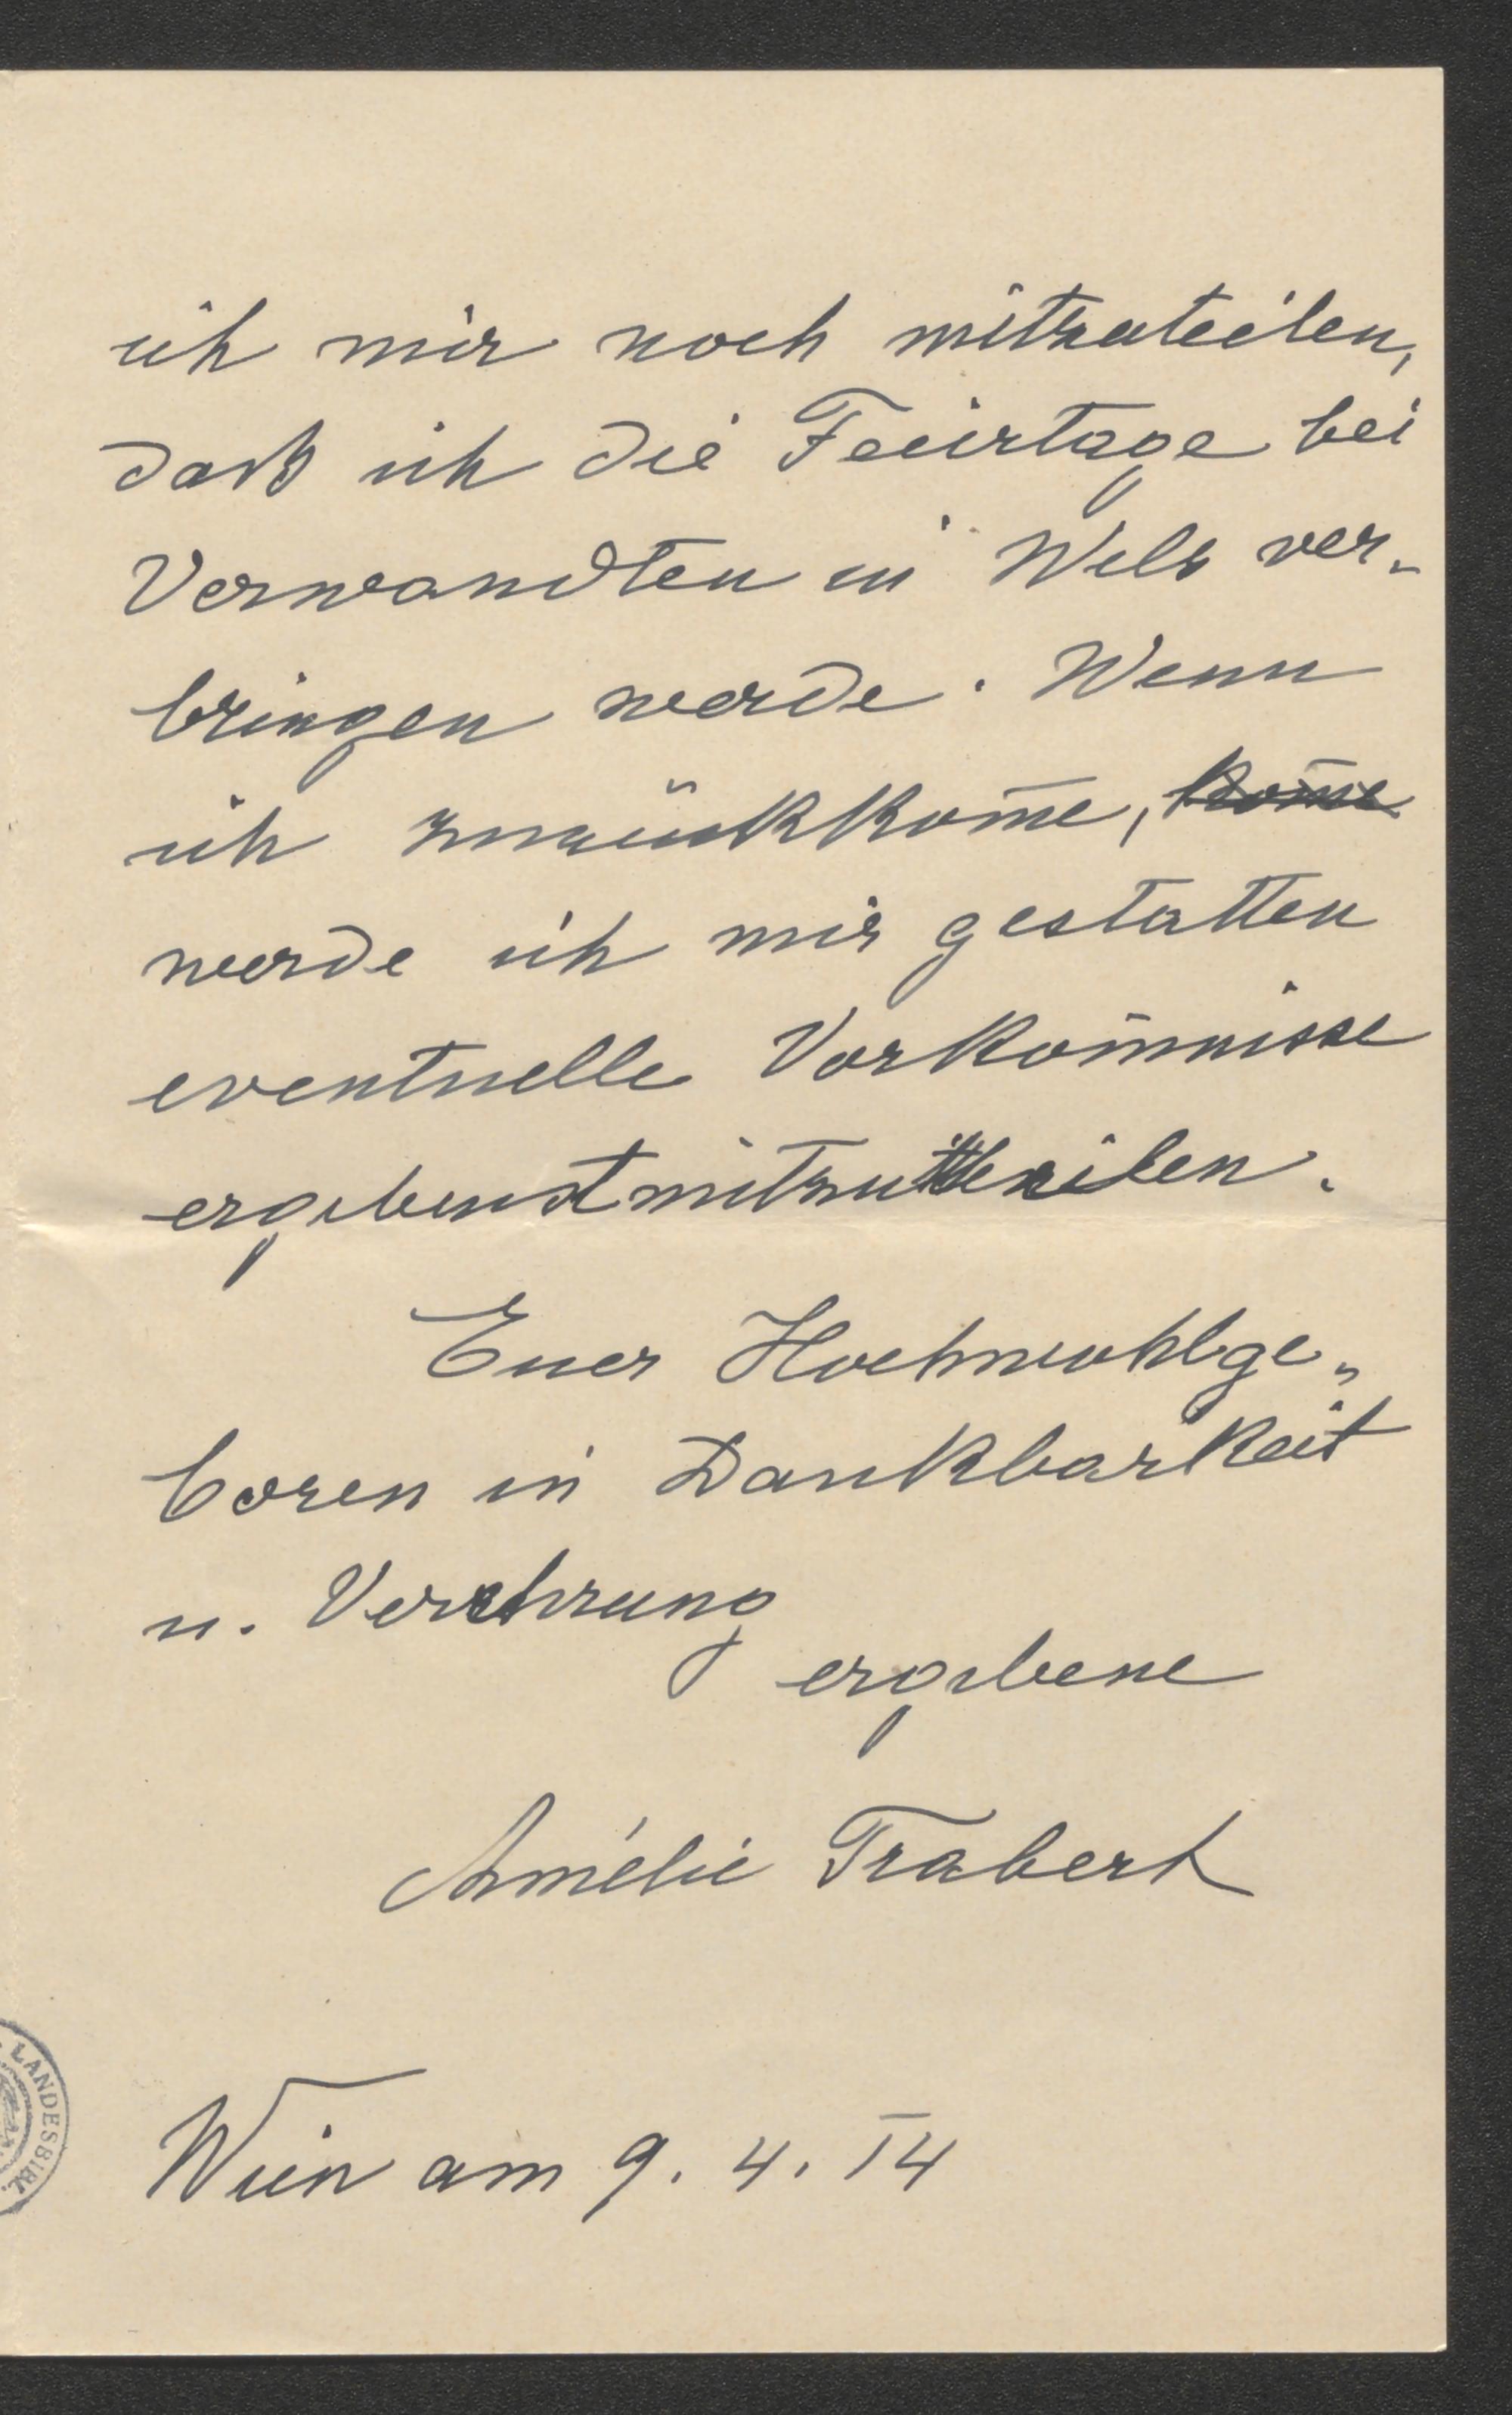 ich mir noch mitzuteilen,
daß ich die Feiertage bei
Verwandten in Wels ver-
bringen werde. Wenn
ich zurückkom̅e, kom̅e
werde ich mir gestatten
eventuelle Vorkom̅nisse
ergebenst mitzuteilen.
Euer Hochwohlge-
boren in Dankbarkeit
u. Verehrung
ergebene
Amélie Trabert
Wien am 9. 4. 14
LANDESBIBL.